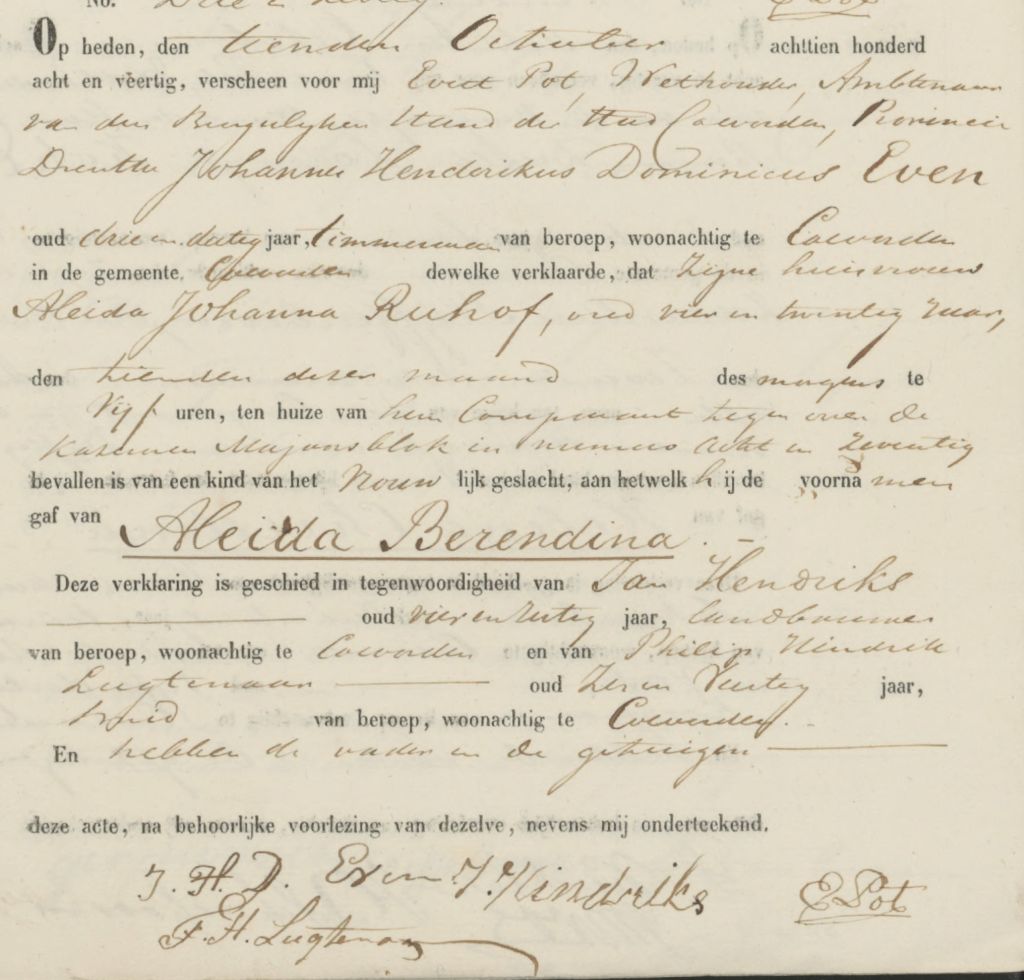 No. Drie en
E Pot
Op heden, den tienden October achttien honderd
acht en veertig, verscheen voor mij Evert Pot, Wethouder, Ambtenaar
van den Burgerlijken Stand der Stad Coevorden, Provincie
Drenthe Johannes Hendrikus Dominicus Even
oud drie en dertig jaar, timmerman van beroep, woonachtig te Coevorden
in de gemeente Coevorden dewelke verklaarde, dat zijne huisvrouw
Aleida Johanna Ruhof, oud vier en twintig Jaar,
den tienden dezer maand des morgens te
Vijf uren, ten huize van hem Comparant tegen over de
Kasernen Majoorsblok in numero acht en zeventig
bevallen is van een kind van het Vrouw lijk geslacht, aan hetwelk h ij de voorna men
gaf van Aleida Berendina. -
Deze verklaring is geschied in tegenwoordigheid van Jan Hendriks
oud vier en jaar, landbouwer
van beroep, woonachtig te Coevorden en van Philip Hindrik
Lugtenaar oud Zes en Veertig jaar,
van beroep, woonachtig te Coevorden. -
En hebben de vader en de getuigen
deze acte, na behoorlijke voorlezing van dezelve, nevens mij onderteekend.
J. H. D. Even J. Hindriks E Pot
F. H. Lugtenaar